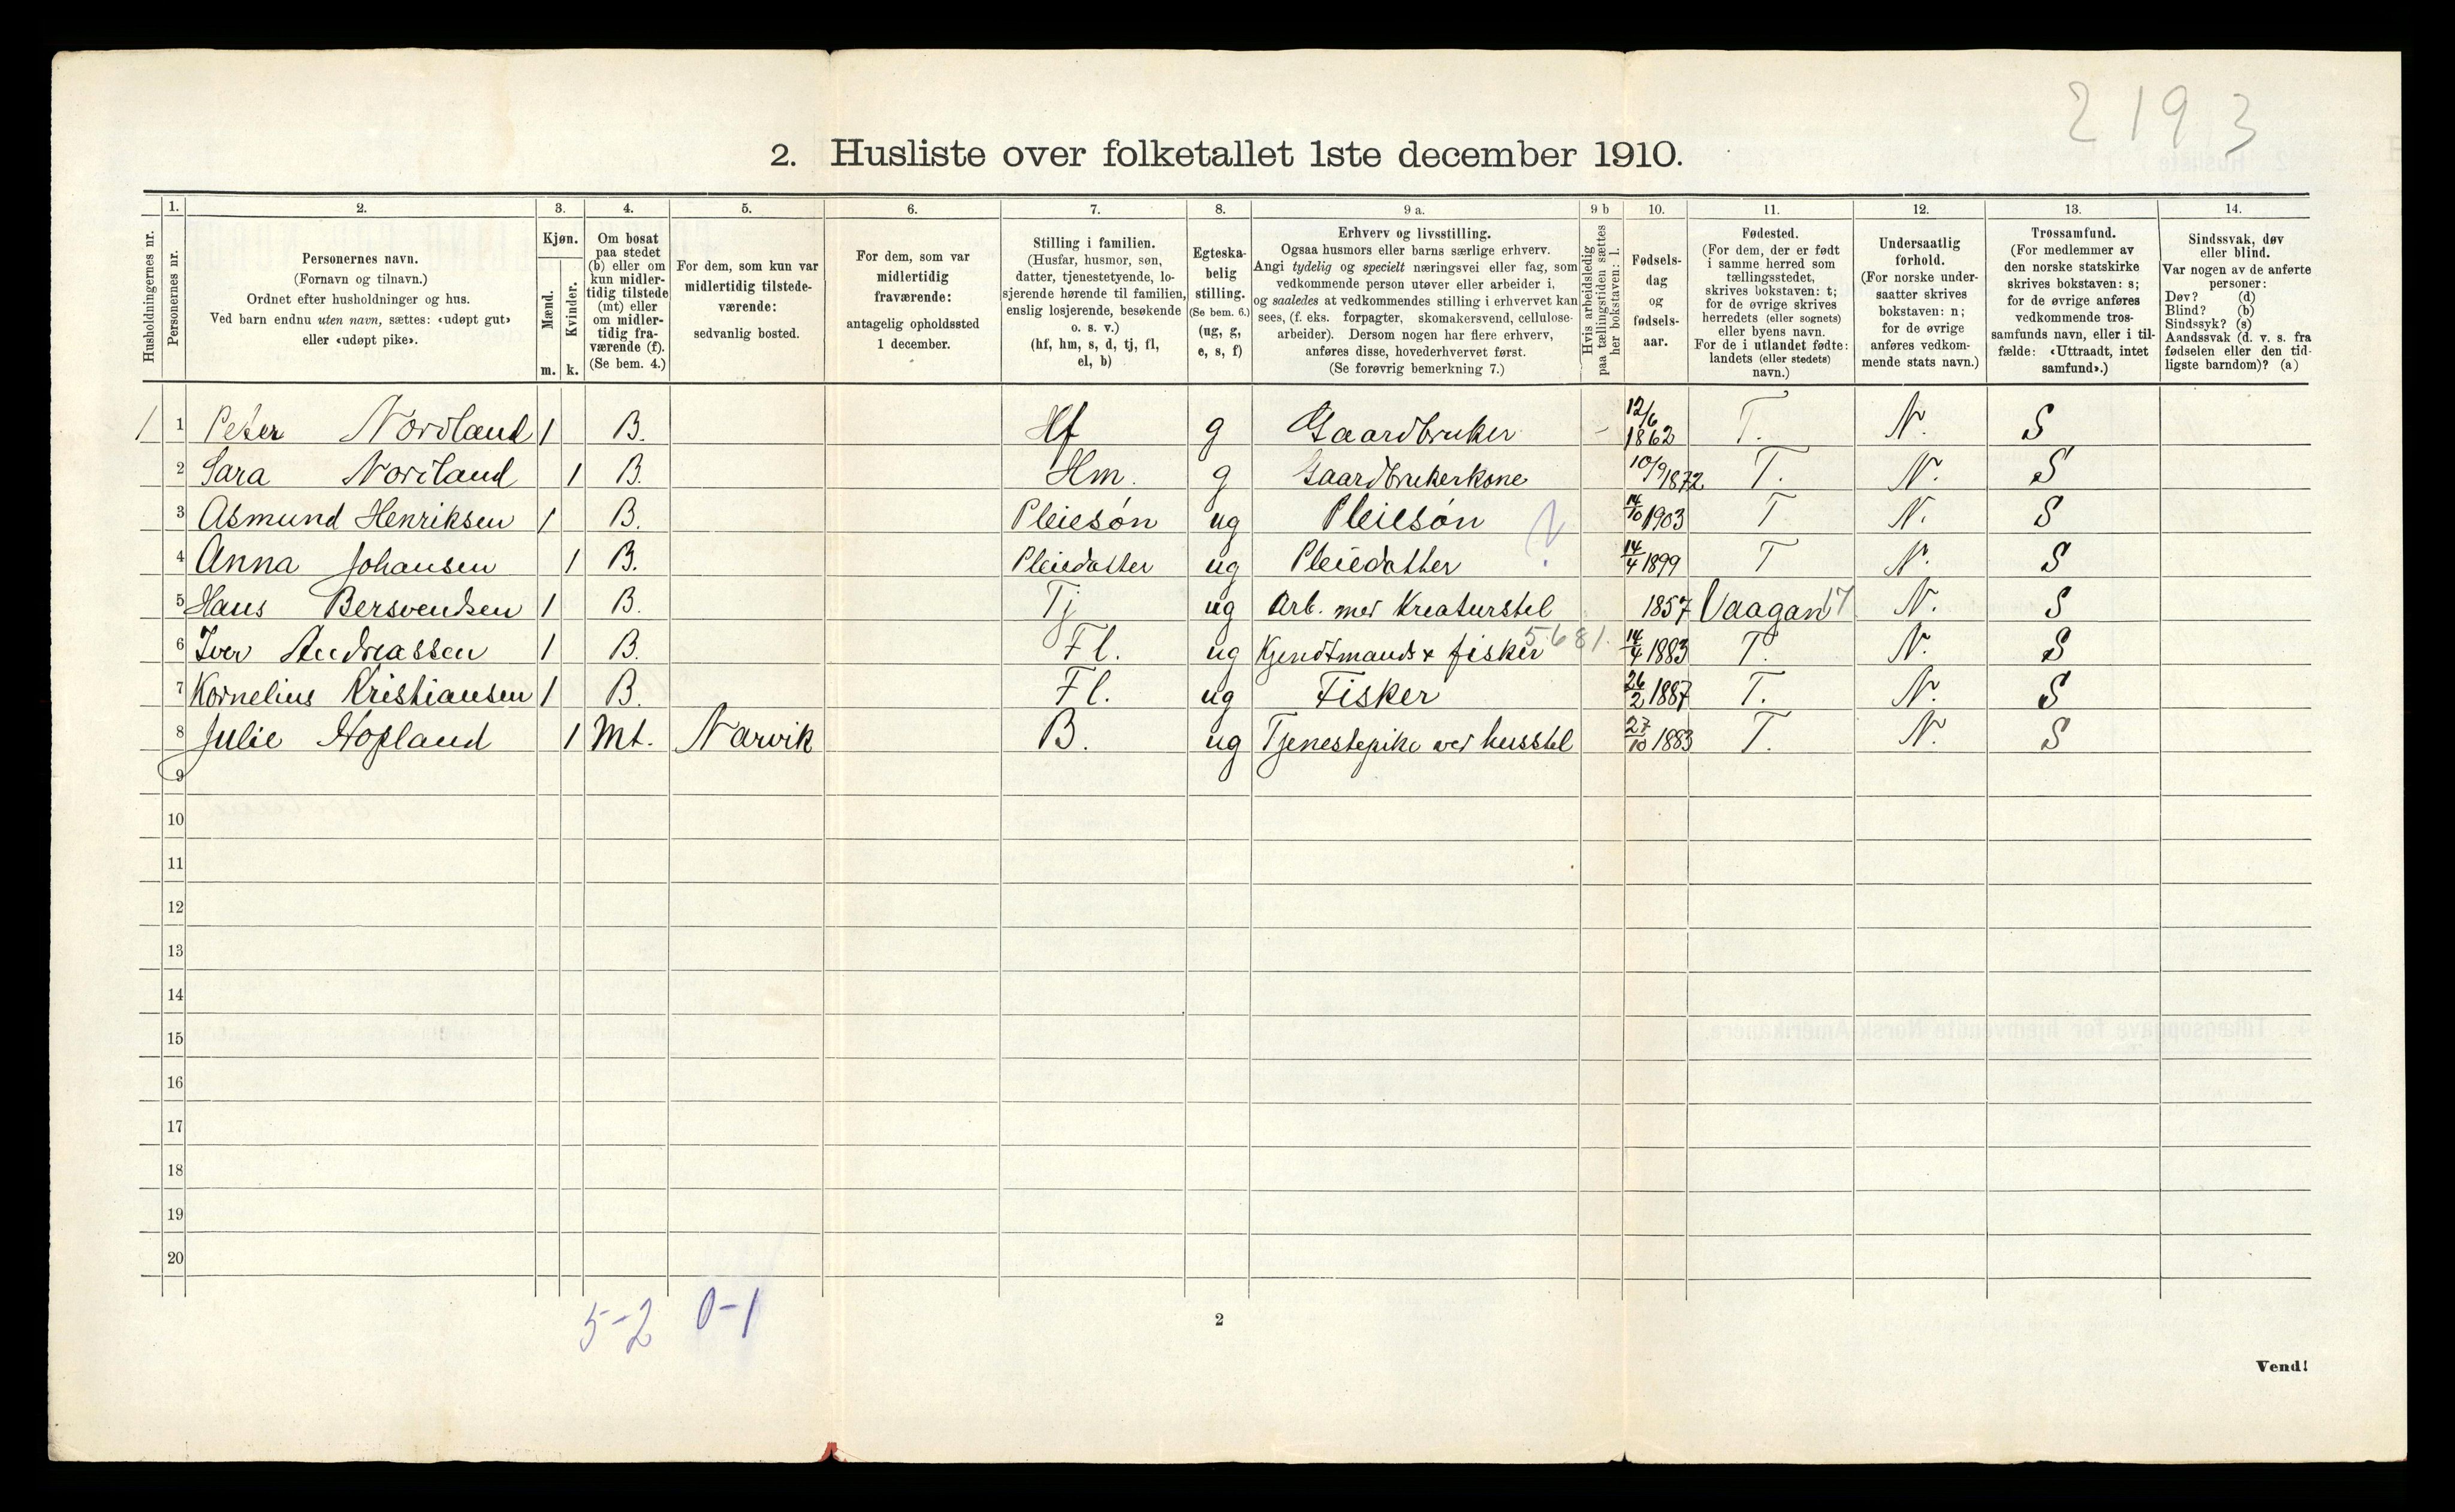 2193
2. Husliste over folketallet 1ste december 1910.
1. 2. 3. 4. 5. 6. 7. 8. 9 a. 9 b 10. 11. 12. 13. 14.
Husholdningernes nr.
Personernes nr.
Personernes navn.
(Fornavn og tilnavn.)
Ordnet efter husholdninger og hus.
Ved barn endnu uten navn, sættes: «udøpt gut»
eller «udøpt pike».
Kjøn.
Mænd.
Kvinder.
m. k.
Om bosat
paa stedet
(b) eller om
kun midler-
tidig tilstede
(mt) eller
om midler-
tidig fra-
værende (f).
(Se bem. 4.)
For dem, som kun var
midlertidig tilstede-
værende:
sedvanlig bosted.
For dem, som var
midlertidig
fraværende:
antagelig opholdssted
1 december.
Stilling i familien.
(Husfar, husmor, søn,
datter, tjenestetyende, lo-
sjerende hørende til familien,
enslig losjerende, besøkende
o. s. v.)
(hf, hm, s, d, tj, fl,
el, b)
Egteska-
belig
stilling.
(Se bem. 6.)
(ug, g,
e, s, f)
Erhverv og livsstilling.
Ogsaa husmors eller barns særlige erhverv.
Angi tydelig og specielt næringsvei eller fag, som
vedkommende person utøver eller arbeider i,
og saaledes at vedkommendes stilling i erhvervet kan
sees, (f. eks. forpagter, skomakersvend, cellulose-
arbeider). Dersom nogen har flere erhverv,
anføres disse, hovederhvervet først.
(Se forøvrig bemerkning 7.)
Hvis arbeidsledig
paa tællingstiden sættes
her bokstaven: l.
Fødsels-
dag
og
fødsels-
aar.
Fødested.
(For dem, der er født
i samme herred som
tællingsstedet,
skrives bokstaven: t;
for de øvrige skrives
herredets (eller sognets)
eller byens navn.
For de i utlandet fødte:
landets (eller stedets)
navn.)
Undersaatlig
forhold.
(For norske under-
saatter skrives
bokstaven: n;
for de øvrige
anføres vedkom-
mende stats navn.)
Trossamfund.
(For medlemmer av
den norske statskirke
skrives bokstaven: s;
for de øvrige anføres
vedkommende tros-
samfunds navn, eller i til-
fælde: «Uttraadt, intet
samfund».)
Sindssvak, døv
eller blind.
Var nogen av de anførte
personer:
Døv? (d)
Blind? (b)
Sindssyk? (s)
Aandssvak (d. v. s. fra
fødselen eller den tid-
ligste barndom)? (a)
1 1 Peter Nordland 1 B. Hf g Gaardbruker - 12/6 1862 T. N. S
2 Sara Nordland 1 B. Hm. g Gaardbrukerkone 10/9 1872 T. N. S
3 Asmund Henriksen 1 B. Pleiesøn ug Pleiesøn 14/10 1903 T N. S
4 Anna Johansen 1 B. Pleiedatter ug Pleiedatter ? 14/4 1899 T N. S
5 Hans Bersvendsen 1 B. Tj ug Arb. med Kreaturstel 1857 Vaagan 17 N. S
6 Iver Andreassen 1 B. Fl. ug Kjendtmands x fisker 5681. 14/4 1883 T. N. S
7 Kornelius Kristiansen 1 B. Fl. ug Fisker 26/2 1887 T. N. S
8 Julie Hopland 1 Mt. Narvik B. ug Tjenestepike ved husstel 27/10 1883 T. N. S
9
10
11
12
13
14
15
16
17
18
19
20
5-2 0-1
2
Vend!